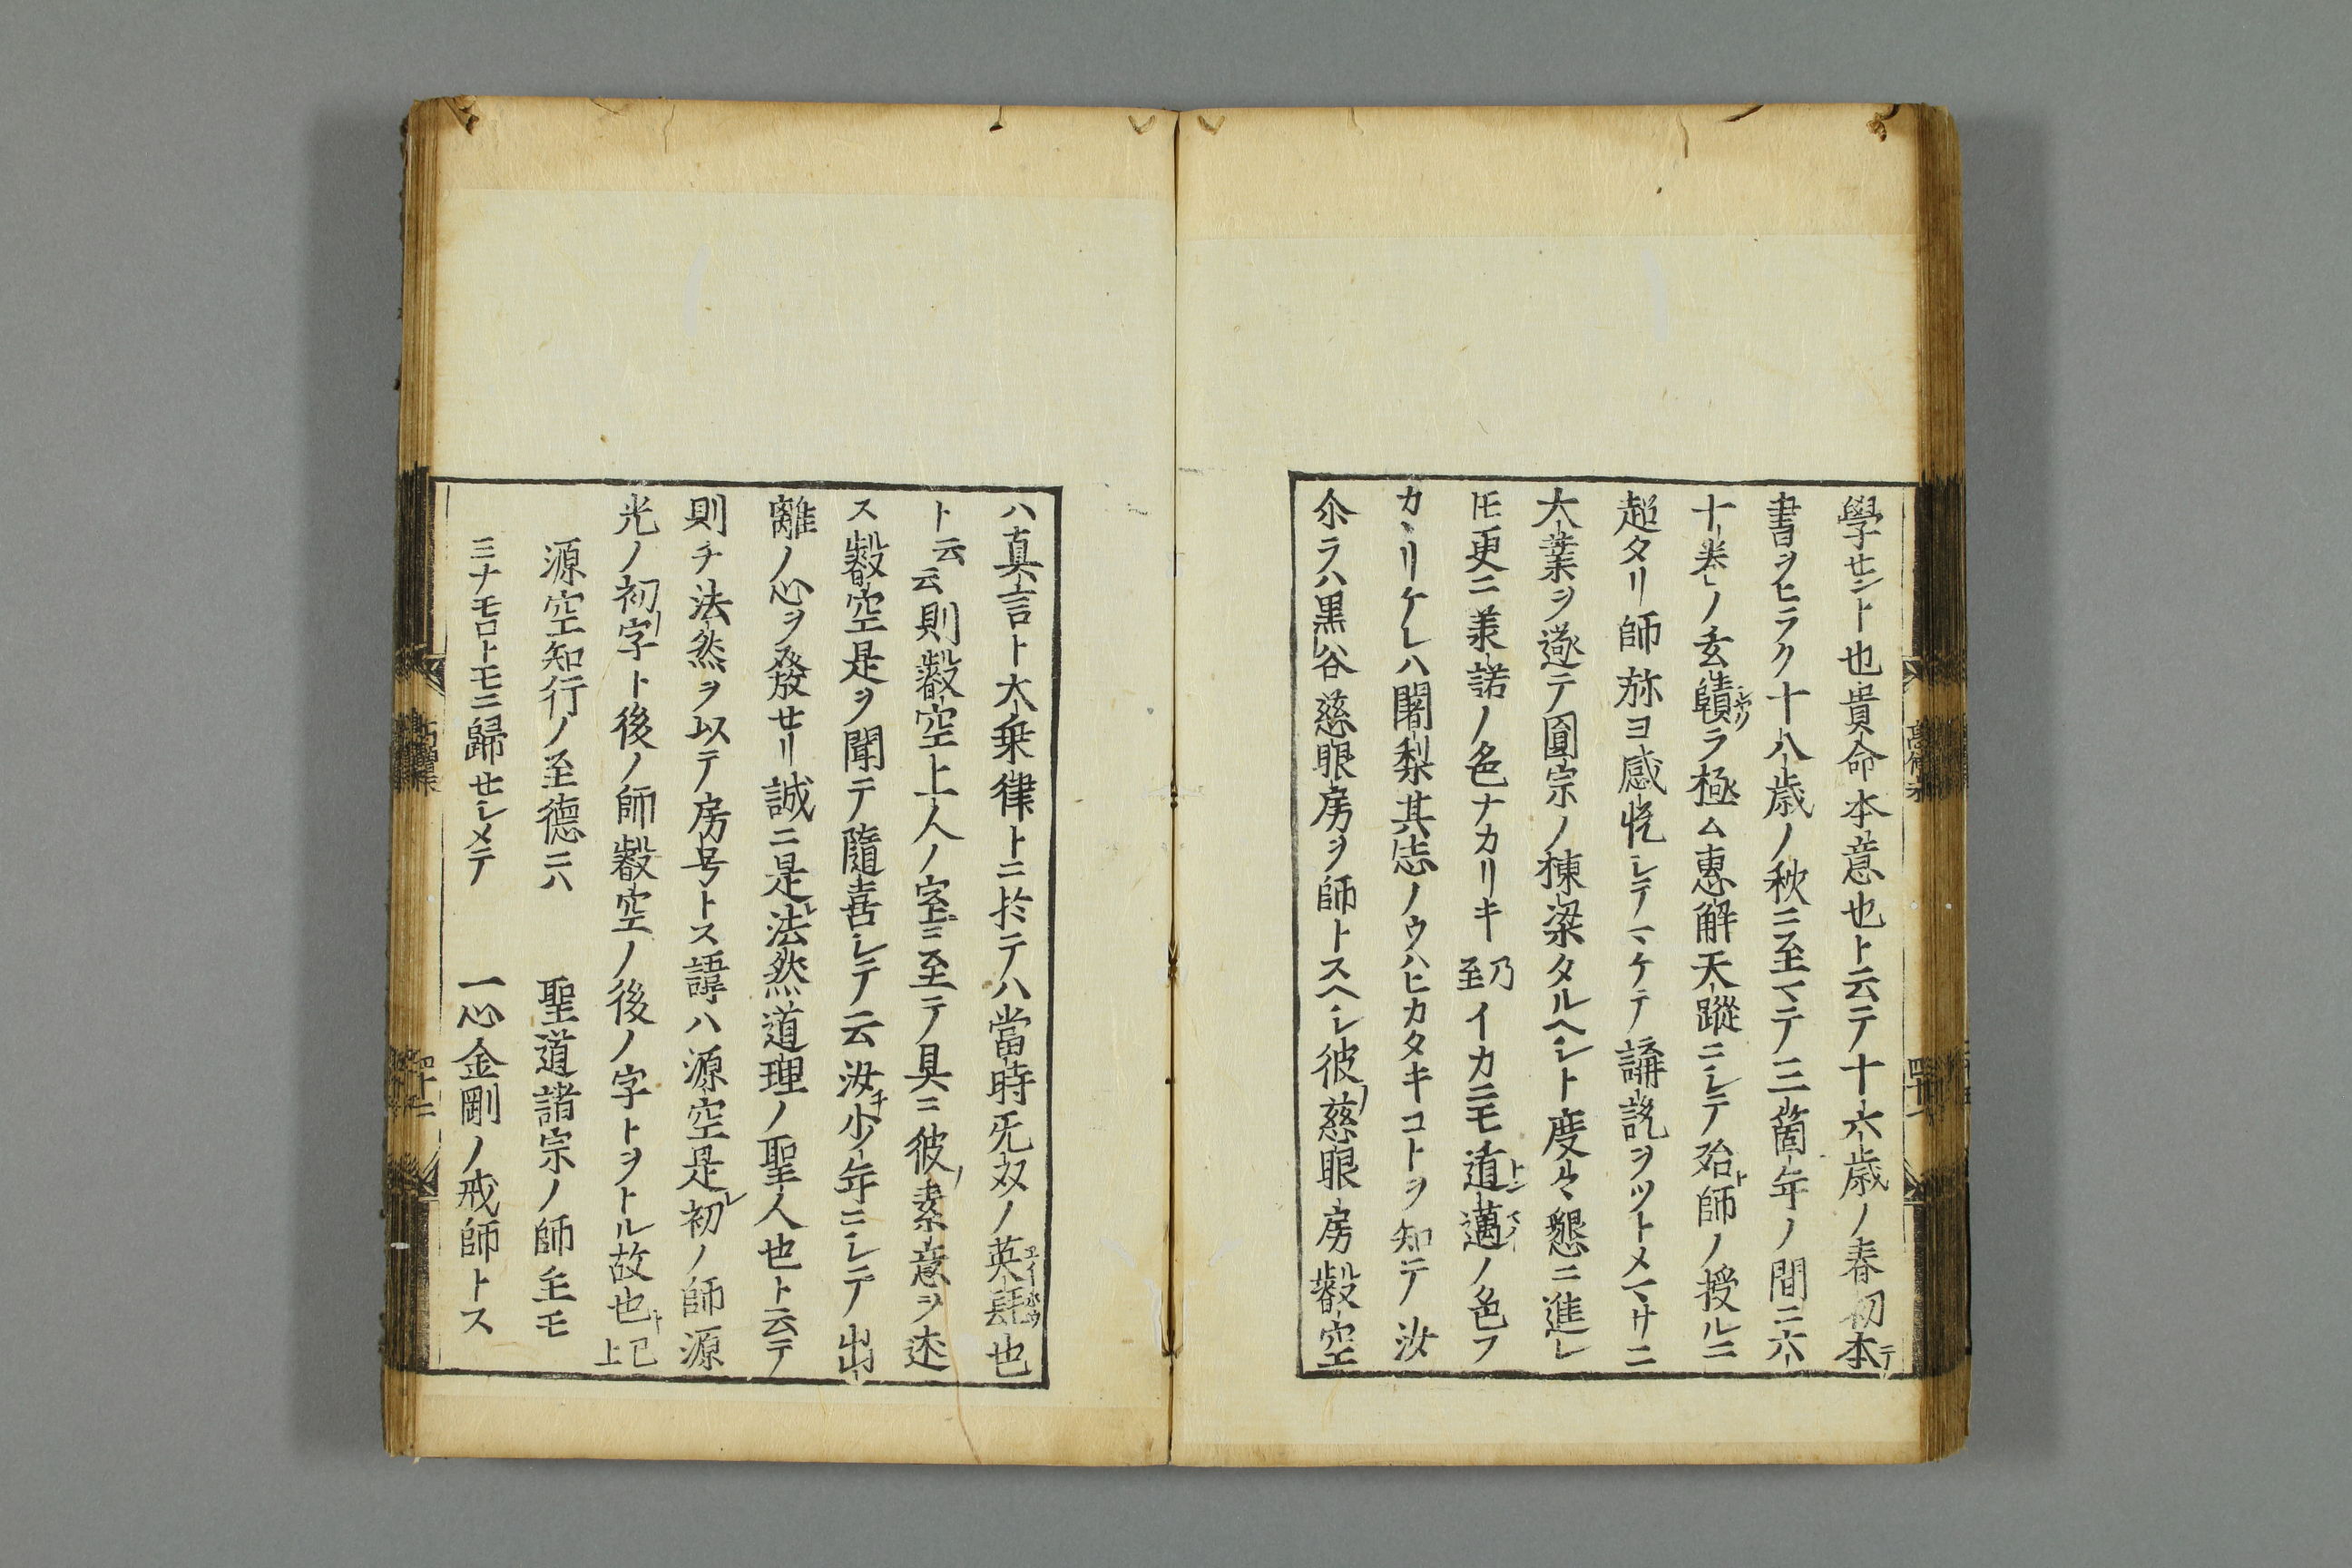 學センハ也貴命本意也ト云テ十六歳ノ春初テ本
書ヲヒラク十八歳ノ秋ニ至マテ三箇年ノ間ニ六
十卷ノ玄賾ヲ極ム惠解天蹤ニシテ殆ト師ノ授ルニ
超タリ師弥ヨ感悦シテマケテ講説ヲツトメマサニ
大業ヲ遂テ圓宗ノ棟梁タルヘシト度々懇ニ進レ
㕝更ニ兼諾ノ色ナカリキ乃至イカニモ遁邁ノ色フ
カヽリケレハ闍梨其志ノウハヒカタキコトヲ知テ汝
尒ラハ黒谷慈眼房ヲ師トスヘシ彼ノ慈眼房叡空
ハ真言ト大乗律トニ於テハ當時无双ノ英髦也
ト云云則叡空上人ノ室ニ至テ具ニ彼ノ素意ヲ述
ス叡空是ヲ聞テ隨喜シテ云汝チ少年ニシテ出
離ノ心ヲ發せリ誠ニ是レ法然道理ノ聖人也ト云テ
則チ法然ヲ以テ房号トス諱ハ源空是レ初ノ師源
光ノ初ノ字ト後ノ師叡空ノ後ノ字トヲトル故也ト已上
源空知行ノ至德ニハ　聖道諸宗ノ師主モ
ミナモロトモニ歸せシメテ　一心金剛ノ戒師トス
四十二